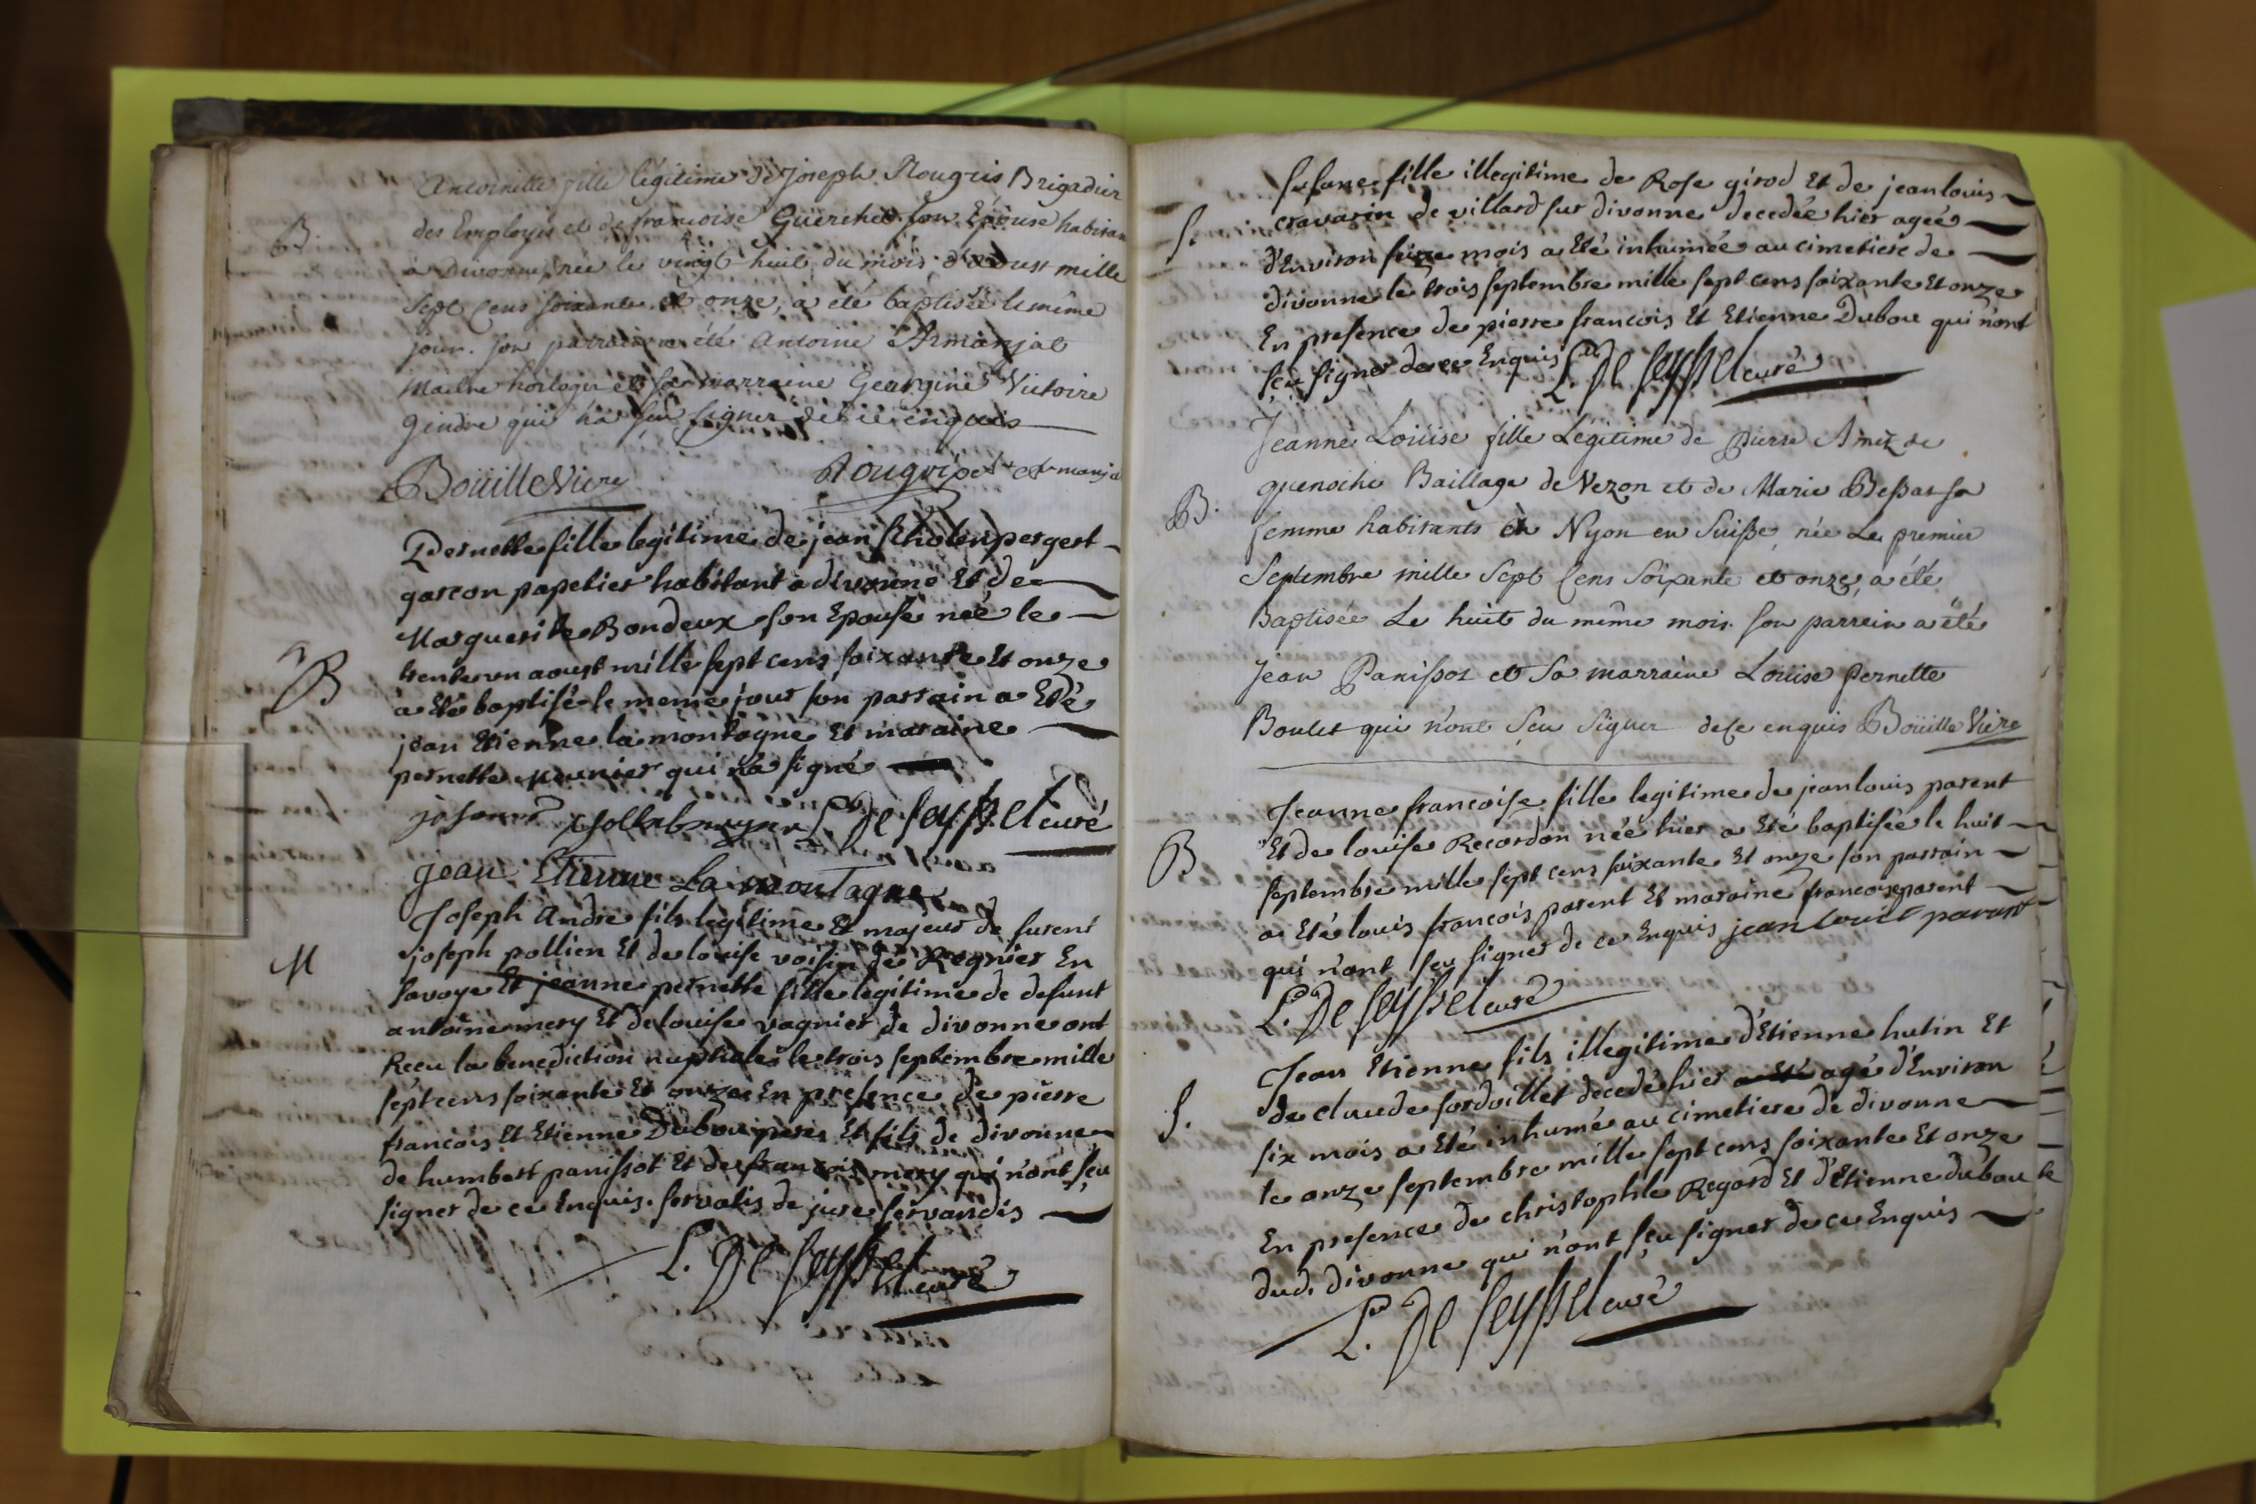 Antoinette fille légitime de Joseph Rougris Brigadier
B.
des Employés et de françoise Guerchet son Epouse habitan
a Divonne, née le vingt huit du mois d'Aoust mille
Sept Cens soixante et onze, a été baptisée le même
jour. Son parrain a été Antoine Armanjat
Maitre horloger et sa marraine Georgine Victoire
Gindre qui n'a seu signer de ce enquis
Boüille Vicre Rougris Armanja
Pernette fille legitime de jean
garcon papetier habitant a divonne Et de
Marguerite Bondeux son Epouse née le
B
trente un aoust mille sept cens soixante Et onze
a Eté baptisé le meme jour son parrain a Eté
jean Etienne la montagne Et maraine
pernette Meunier qui n'a signé
L. De Seyssel curé
jean Etienne La montagne
Joseph André fils legitime Et majeur de
M
joseph pollien Et de louise voisin de Regnier En
Savoye Et jeanne pernette fille legitime de defunt
antoine mery Et de louise vagnier de divonne ont
Receu la benediction nuptiale le trois septembre mille
sept cens soixante Et onze En presence de pierre
francois Et Etienne Dubou pere Et fils de divonne
de humbert panissot Et de francois mery qui n'ont sçu
signer de ce Enquis. servatis de jure servandis
L. De Seyssel curé
Susane fille illegitime de Rose girod Et de jean louis
S.
cravarin de villard sur divonne decedée hier ageé
d'Environ seize mois a Eté inhumée au cimetiere de
divonne le trois septembre mille sept cens soixante Et onze
En presence de pierre francois Et Etienne Dubou qui n'ont
sçu signer de ce Enquis L. De Seyssel curé
Jeanne Loüise fille Légitime de Pierre Amez de
quenoche Baillage de Vezon et de Marie Bessat sa
B.
femme habitants à Nyon en Suisse, née Le premier
Septembre mille Sept Cens Soixante et onze, a été
Baptisée Le huit du même mois. Son parrein a été
Jean Panissot et Sa marraine Louise Pernette
Boulet qui n'ont Sçu Signer de ce enquis Boüille Vicre
Jeanne francoise fille legitime de jean louis parent
B
Et de louise Recordon née hier a Eté baptisée le huit
septembre mille sept cens soixante Et onze son parrain
a Eté louis francois parent Et maraine francoise parent
qui n'ont sçu signer de ce Enquis jean Louis parent
L. De Seyssel curé
Jean Etienne fils illegitime d'Etienne hutin Et
S.
de claude sordoillet decedé hier a Eté agé d'Environ
six mois a Eté inhumé au cimetiere de divonne
le onze septembre mille sept cens soixante Et onze
En presence de christophle Regard Et d'Etienne dubou
dud. divonne qui n'ont sçu signer de ce Enquis
L. De Seyssel curé